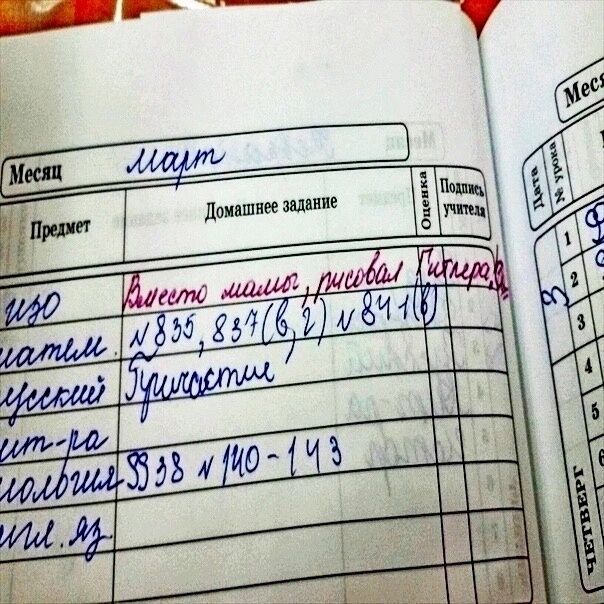 Месяц март
Предмет Домашнее задание Оценка Подпись учителя
изо Вместо мамы, рисовал Гитлера,
матем. №835, 837(в,г) №841(в)
русский Причастие
лит-ра
иология §§38 №140-143
нгл. яз.
Меся
Дата № урока
1
2
3
3
4
5
6
ЧЕТВЕРГ